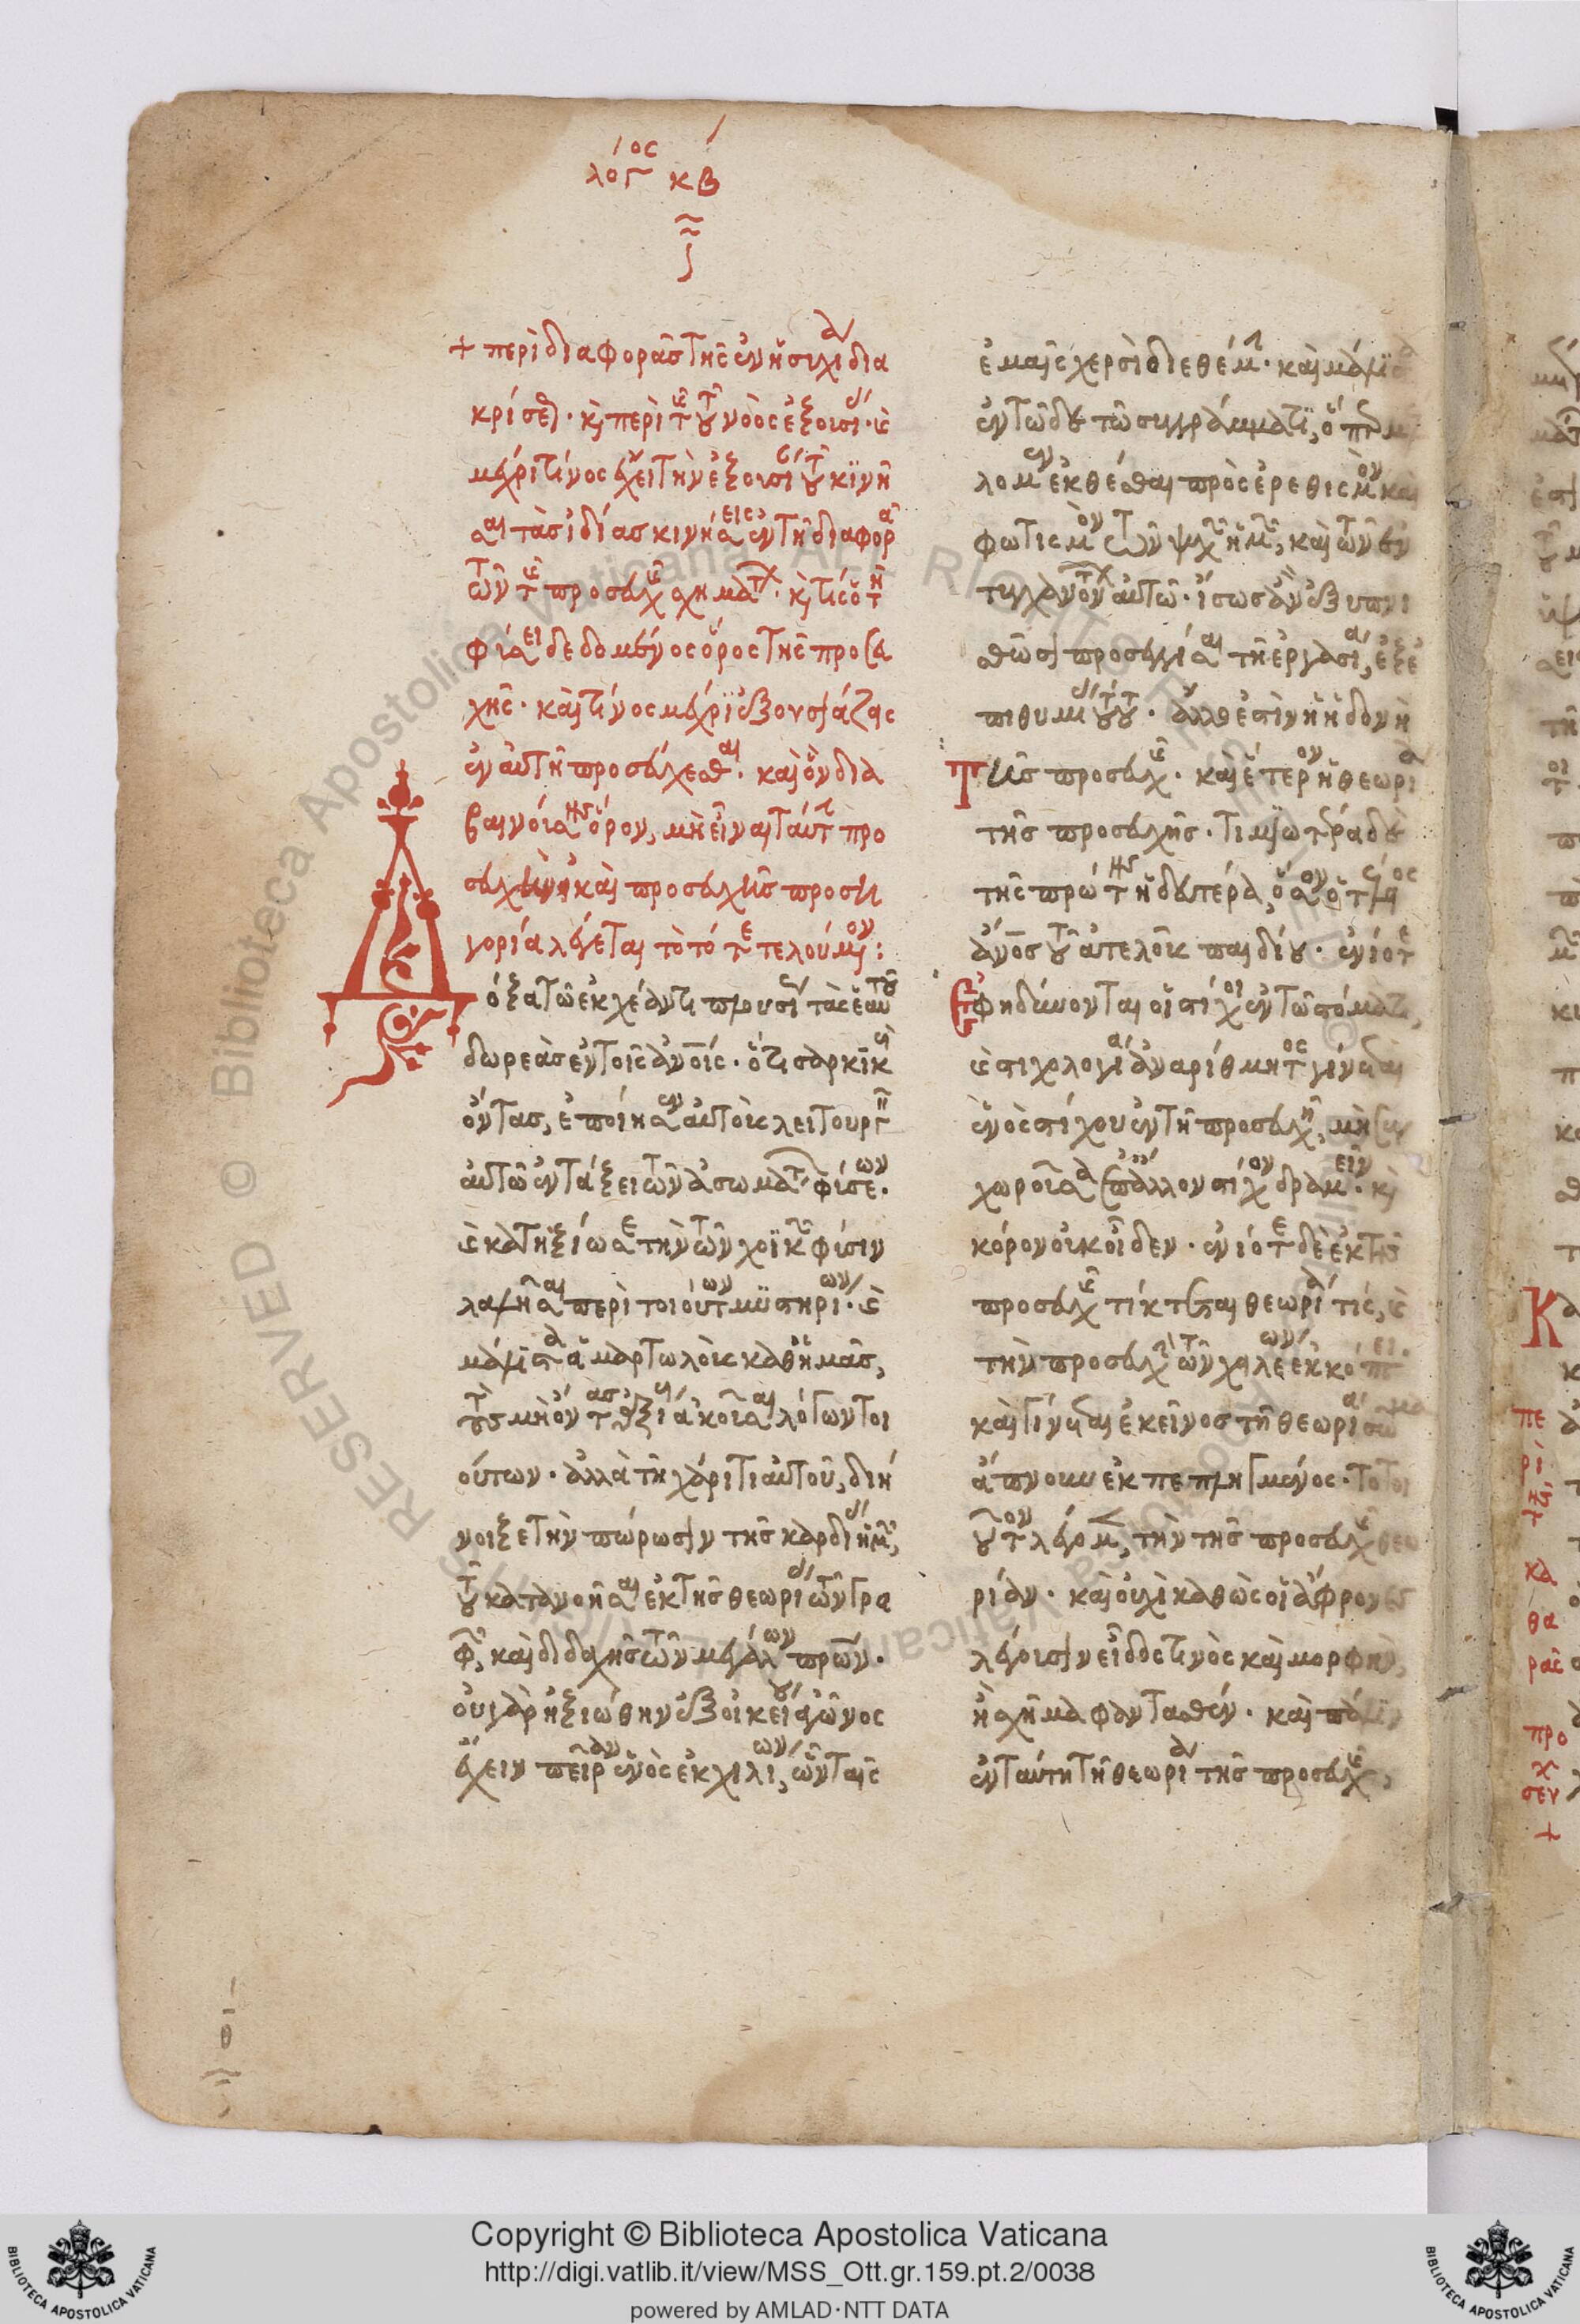 λόγος κβ
+ περὶ διαφορᾶς τῆς ἐν ἡσυχίᾳ δια
κρίσεως · καὶ περὶ τῆς τοῦ νοὸς ἐξουσίας · καὶ
μέχρι τίνος ἔχει τὴν ἐξουσίαν τοῦ κϊνῆ
σαι τὰς ἰδίας κινήσεις ἐν τῆ διαφορᾶ
τῶν τῆς προσευχῆς σχημάτων · καὶ τίς ὁ τῆ
φύσει δεδομένος ὅρος τῆς προσευ
χῆς · καὶ τίνος μέχρϊ ἐξουσιάζεις
ἐν αὐτῆ προσεύχεσθαι · καὶ ὃν δια
βαινούσης ὅρον, μὴ εἶναι ταύτην προ
σευχὴν, κἂν προσευχῆς προση
γορία λέγεται τὸ τότε τελούμενον :
Δόξα τῶ ἐκχέαντι πλουσίως τὰς ἑαυτοῦ
δωρεὰς ἐν τοῖς ἀνοῖς · ὅτι σαρκϊκοὺς
ὄντας, ἐποίησεν αὐτοὺς λειτουργεῖν
αὐτῶ ἐν τάξει τῶν ἀσωμάτων φύσεων ·
καὶ κατηξίωσε τὴν τῶν χοϊκῶν φύσιν
λαλῆσαι περὶ τοιούτων μϋστηρίων · καὶ
μάλϊστα ἁμαρτωλοὺς καθ' ἡμᾶς,
τοὺς μὴ ὄντας ἀξίους ἀκοῦσαι λόγων τοι
ούτων · ἀλλὰ τῆ χάριτι αὐτοῦ, διή
νοιξε τὴν πώρωσιν τῆς καρδίας ἡμῶν,
τοῦ κατανοῆσαι ἐκ τῆς θεωρίας τῶν γρα
φῶν, καὶ διδαχῆς τῶν μεγάλων πρων ·
οὐ γὰρ ἠξιώθην ἐξ οἰκείου ἀγῶνος
ἔχειν πεῖραν ἑνὸς ἐκ χιλίων, ὧν ταῖς
ἐμαῖς χερσὶ διεθέμην · καὶ μάλϊστα
ἐν τῶδε τῶ συγγράμματϊ, ὅπερ μέλ
λομεν ἐκθέσθαι πρὸς ἐρεθισμὸν καὶ
φωτισμὸν τῶν ψυχῶν ἡμῶν, καὶ τῶν ἐν
τυγχανόντων αὐτῶ · ἴσως ἂν ἐξυπνι
σθῶσι προσεγγίσαι τῆ ἐργασία, ἐξ ἐ
πιθυμίας τούτου · ἄλλη ἐστὶν ἡ ἡδονὴ
Τῆς προσευχῆς · καὶ ἕτερον ἡ θεωρία
τῆς προσευχῆς · τιμϊωτέρα δὲ
τῆς πρώτης ἡ δευτέρα, ὅσον ὁ τέλειος
ἄνος τοῦ ἀτελοῦς παιδίου · ἐνίοτε
Ἐφηδύνονται οἱ στίχοι ἐν τῶ στόματι,
καὶ στιχολογία ἀναρίθμητος γίνεται
ἑνὸς στίχου ἐν τῆ προσευχῆ, μὴ συγ
χωροῦσα ἐπ' ἄλλον στίχον δραμεῖν · καὶ
κόρον οὐκ οἶδεν · ἐνίοτε δὲ ἐκ τῆς
προσευχῆς τίκτεται θεωρία τίς, καὶ
τὴν προσευχὴν τῶν χειλέων ἐκκόπτει ·
καὶ γίνεται ἐκεῖνος τῆ θεωρία σῶμα
ἄπνουν ἐκπεπληγμένος · τὸ τοι
οῦτον λέγομεν, τὴν τῆς προσευχῆς θεω
ρίαν · καὶ οὐχὶ καθὼς οἱ ἄφρονες
λέγουσιν εἶδος τινὸς καὶ μορφὴν,
ἢ σχῆμα φαντασθέν · καὶ πάλϊν
ἐν ταύτη τῆ θεωρία τῆς προσευχῆς,
Κ
πε
ρὶ
κα
θα
ρᾶς
προ
σευ
+
Copyright © Biblioteca Apostolica Vaticana
http://digi.vatlib.it/view/MSS_Ott.gr.159.pt.2/0038
powered by AMLAD·NTT DATA
BIBLIOTECA APOSTOLICA VATICANA
BIBLIOTECA APOSTOLICA VATICANA